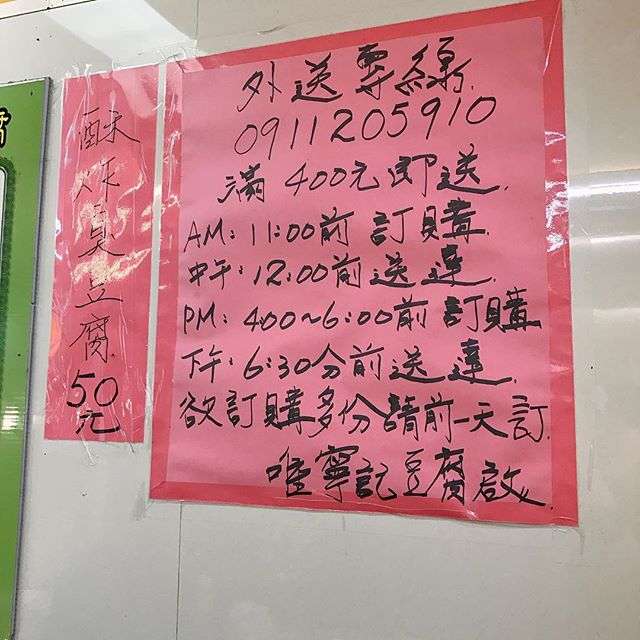 外送專線
0911205910
滿400元即送
AM: 11:00前 訂購
中午: 12:00前送達
PM: 4:00~6:00前訂購
下午: 6:30分前送達
欲訂購多份請前一天訂
唯寧記豆腐啟
酥炸臭豆腐50元